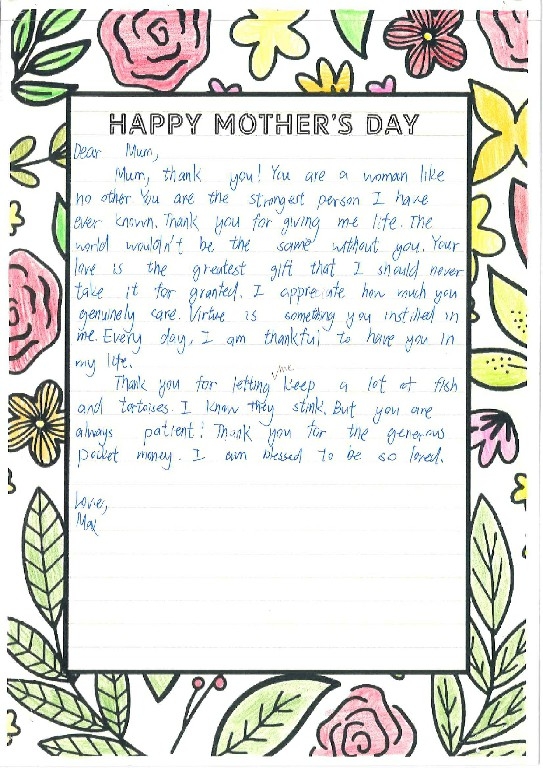 HAPPY MOTHER'S DAY
Dear Mum,
Mum, thank you! You are a woman like
no other. You are the strongest person I have
ever known. Thank you for giving me life. The
world wouldn't be the same without you. Your
love is the greatest gift that I should never
take it for granted. I appreciate how much you
genuinely care. Virtue is something you instilled in
me. Every day, I am thankful to have you in
my life.
Thank you for letting me keep a lot of fish
and tortoises. I know they stink. But you are
always patient! Thank you for the generous
pocket money. I am blessed to be so loved.
Love,
Max